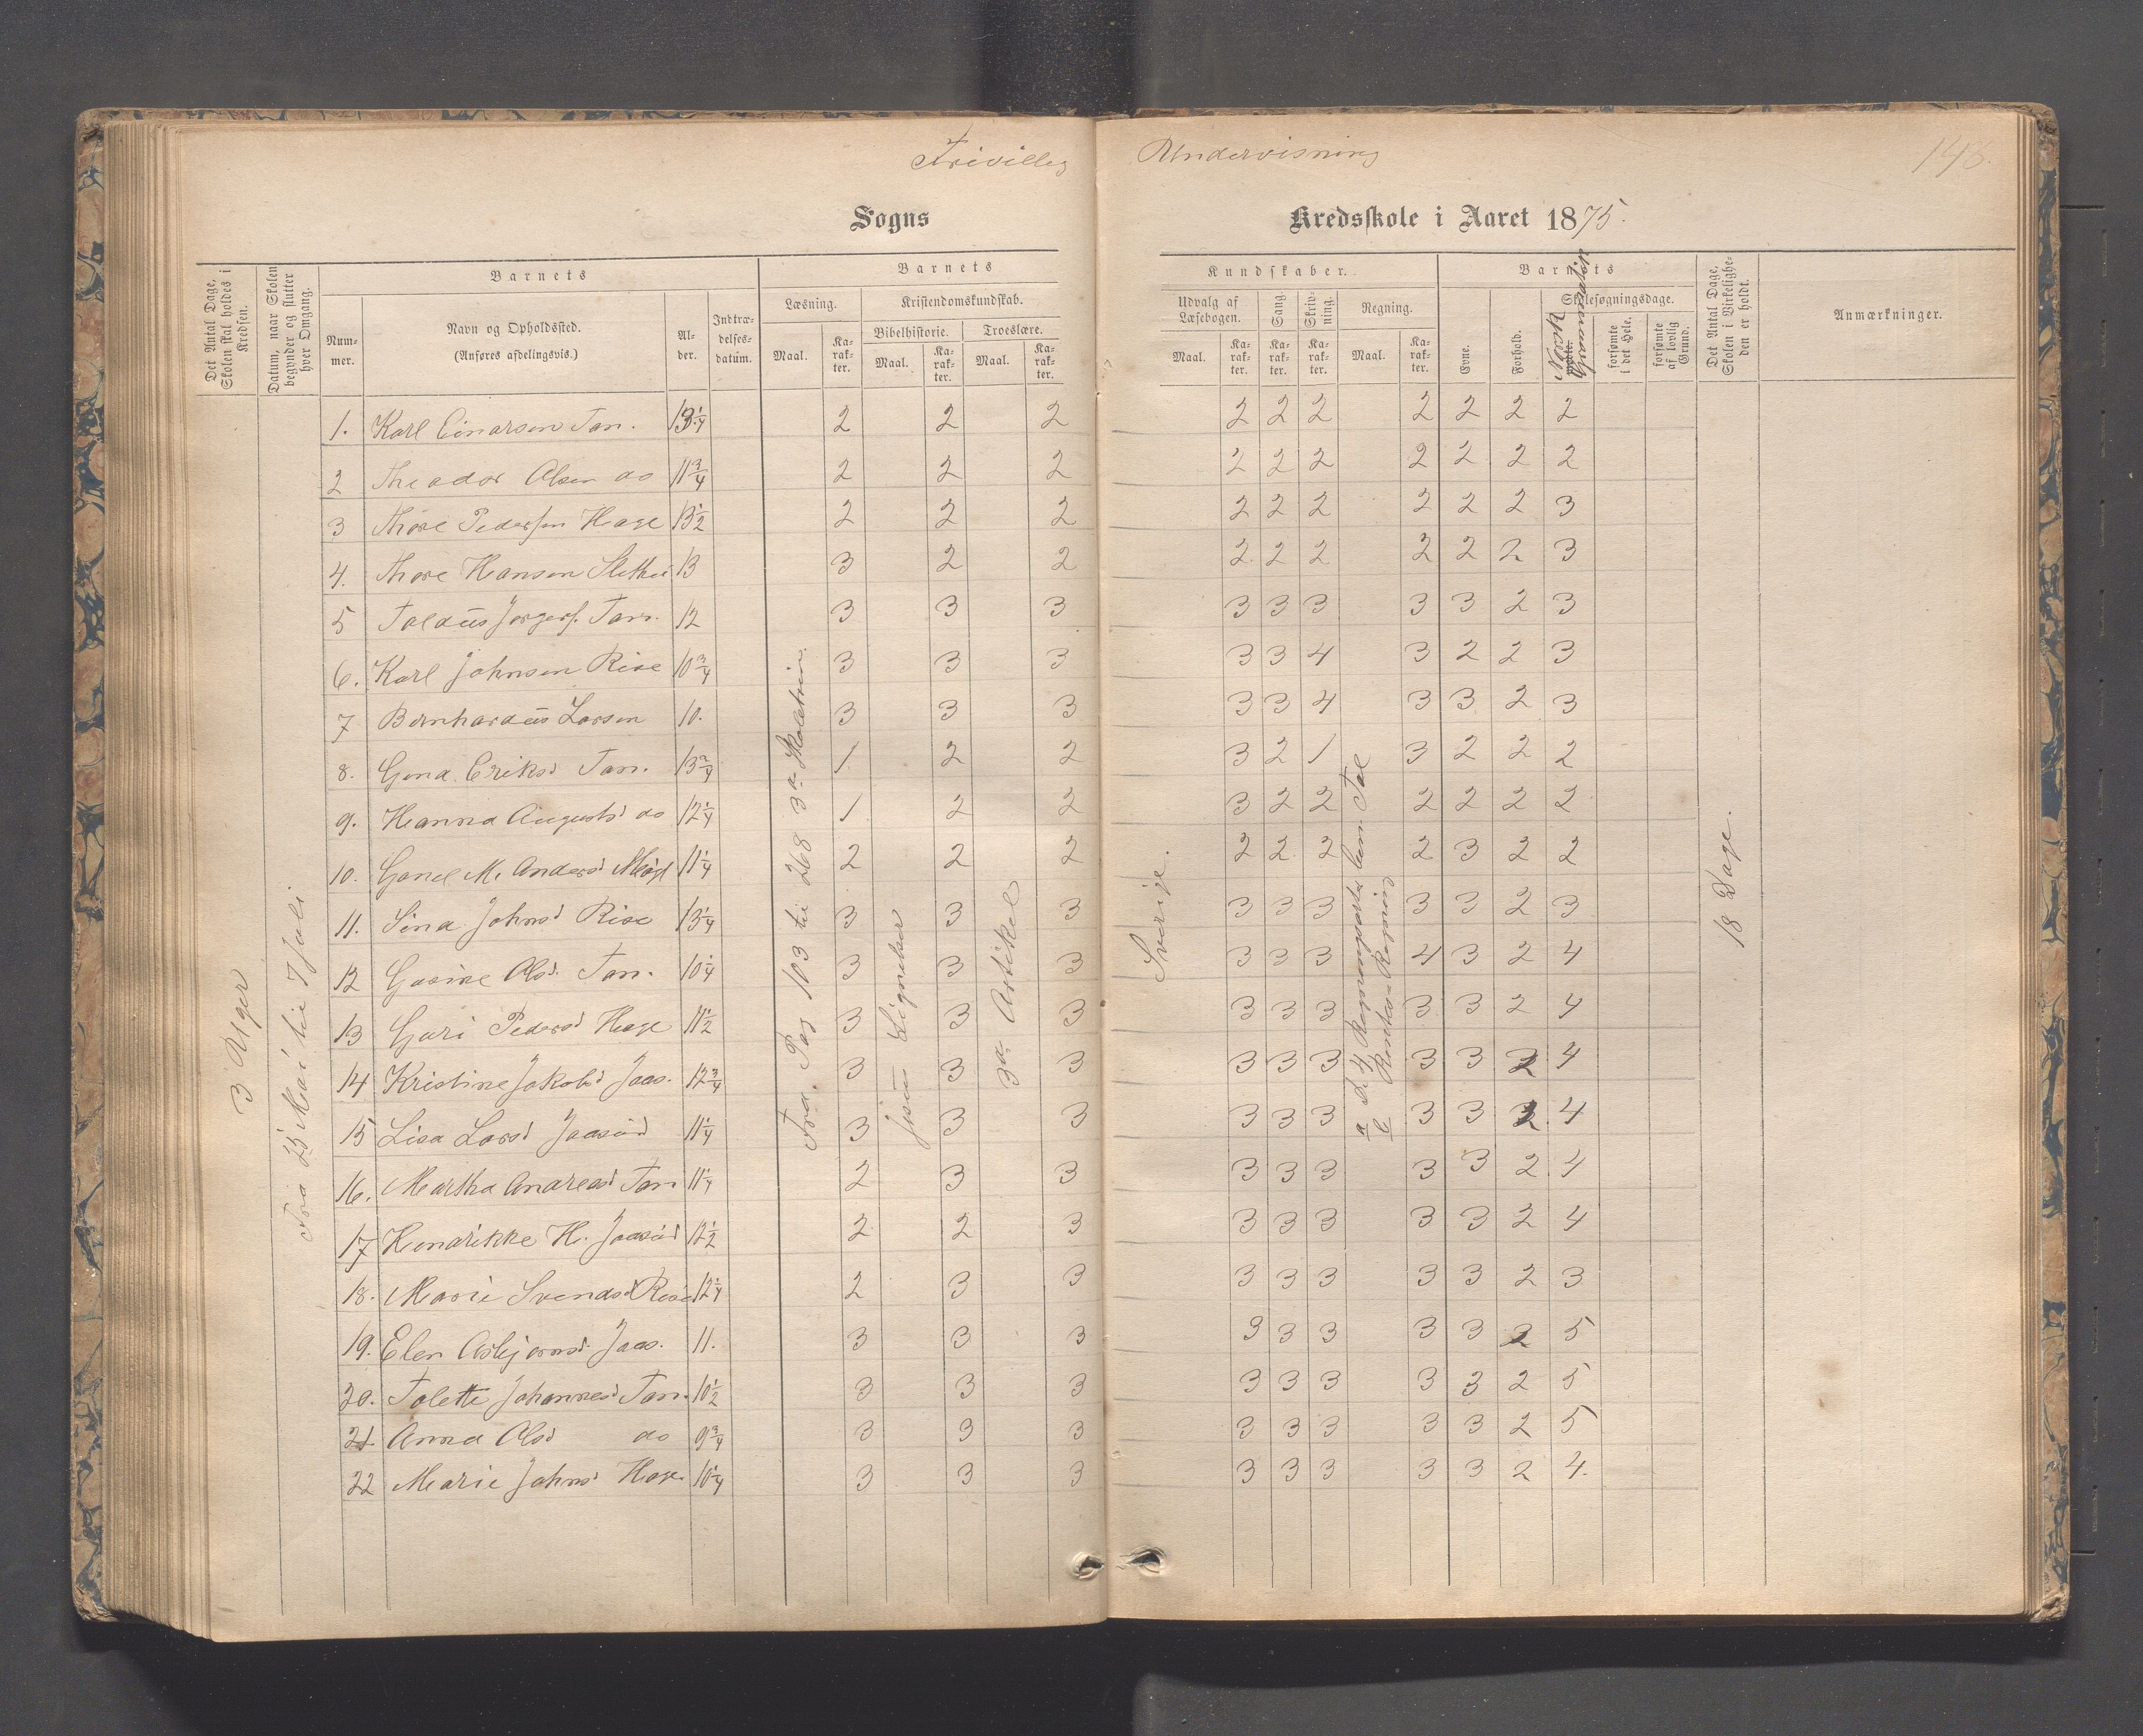 Frivillig Undervisning
148.
Sogns Kredsskole i Aaret 1875.
Det Antal Dage, Skolen skal holdes i Kredsen.
Datum, naar Skolen begynder og slutter hver Omgang.
Barnets
Nummer.
Navn og Opholdssted.
(Anføres afdelingsvis.)
Alder.
Indtrædelsesdatum.
Barnets
Læsning.
Maal.
Karakter.
Kristendomskundskab.
Bibelhistorie.
Maal.
Karakter.
Troeslære.
Maal.
Karakter.
Kundskaber.
Udvalg af Læsebogen.
Maal.
Karakter.
Sang.
Karakter.
Skrivning.
Karakter.
Regning.
Maal.
Karakter.
Barnets
Evne.
Forhold.
Skolesøgningsdage.
Norsk Grammatik
forsømte i det Hele.
forsømte af lovlig Grund.
Det Antal Dage, Skolen i Virkeligheden er holdt.
Anmærkninger.
3 Uger
Fra 25 Mai til 7 Juli
Fra Pag 103 til 268 3a Skoletrin.
Lignelser
3a Artikel
Sverige.
18 Dage.
1. Karl Einarsen Tan. 13 1/4 2 2 2 2 2 2 2 2 2 2
2 Theodor Olsen do 11 3/4 2 2 2 2 2 2 2 2 2 2
3 Thore Pedersen Hage 13 1/2 2 2 2 2 2 2 2 2 2 3
4. Thore Hansen 13 3 2 2 2 2 2 2 2 2 3
5 Tan. 12 3 3 3 3 3 3 3 3 2 3
6. Karl Johnsen Rise 10 3/4 3 3 3 3 3 4 3 2 2 3
7 Bernhardus Larsen 10. 3 3 3 3 3 4 3 3 2 3
8. Gina Eriksd Tan. 13 3/4 1 2 2 3 2 1 3 2 2 2
9. Hanna Augustsd do 12 1/4 1 2 2 3 2 2 2 2 2 2
10. M. Andersd 11 1/4 2 2 2 2 2 2 2 3 2 2
11. Sina Johnsd Rise 13 1/4 3 3 3 3 3 3 3 3 2 3
12 Gosine Olsd. Tan. 10 1/4 3 3 3 3 3 3 4 3 2 4
13 Guri Pedersd Hage 11 1/2 3 3 3 3 3 3 3 3 2 4
14 Kristine Jakobsd Jaas. 12 3/4 3 3 3 3 3 3 3 3 2 4
15 Lisa Larsd Jaasund 11 1/4 3 3 3 3 3 3 3 3 2 4
16. Martha Andreasd Tan 11 1/4 2 3 3 3 3 3 3 3 2 4
17 Hendrikke H. Jaasund 12 1/2 2 2 3 3 3 3 3 3 2 4
18. Marie Svendsd Rise 12 1/4 2 3 3 3 3 3 3 3 2 3
19. Elen Asbjornsd. Jaas. 11. 3 3 3 3 3 3 3 3 2 5
20. Tolette Johannesd Tan. 10 1/2 3 3 3 3 3 3 3 3 2 5
21 Anna Olsd do 9 3/4 3 3 3 3 3 3 3 3 2 5
22 Marie Johnsd Hage. 10 1/4 3 3 3 3 3 3 3 3 2 4.